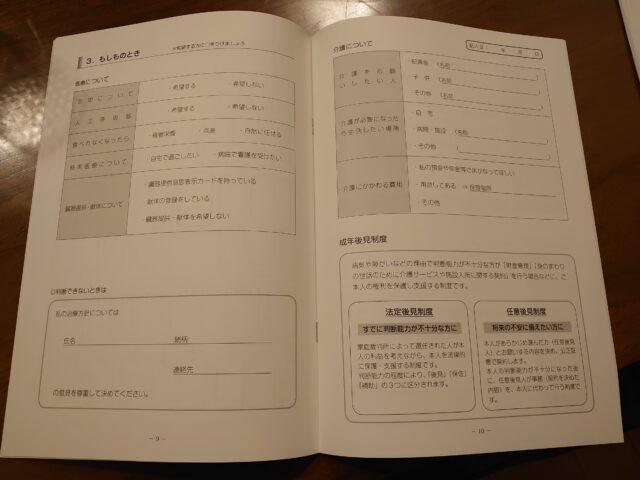 ※希望する方に○をつけましょう
3. もしものとき
医療について
告知について ・希望する ・希望しない
人工呼吸器 ・希望する ・希望しない
食べれなくなったら ・経管栄養 ・点滴 ・自然に任せる
終末医療について ・自宅で過ごしたい ・病院で看護を受けたい
臓器提供・献体について
・臓器提供意思表示カードを持っている
・献体の登録をしている
・臓器提供・献体を希望しない
○判断できないときは
私の治療方針については
氏名 続柄
連絡先
の意見を尊重して決めてください。
－ 9 －
介護について
記入日: 年 月 日
介護をお願いしたい人
・配偶者 (名前 )
・子供 (名前 )
・その他 (名前 )
介護が必要になった
ら生活したい場所
・自宅
・病院・施設 (名前 )
・その他 ( )
介護にかかわる費用
・私の預金や年金等でまかなってほしい
・用意してある ⇒ 保管場所
・その他
成年後見制度
病気や障がいなどの理由で判断能力が不十分な方が「財産管理」「身のまわり
の世話のために介護サービスや施設入所に関する契約」を行う場合などに、ご
本人の権利を保護し支援する制度です。
法定後見制度
すでに判断能力が不十分な方に
家庭裁判所によって選任された人が本
人の利益を考えながら、本人を法律的
に保護・支援する制度です。
判断能力の程度により、「後見」「保佐」
「補助」の3つに区分されます。
任意後見制度
将来の不安に備えたい方に
本人があらかじめ選んだ人（任意後見
人）とお願いする内容を決め、公正証
書で契約します。
本人の判断能力が不十分になった後
に、任意後見人が事務（契約を決めた
内容）を、本人に代わって行う制度で
す。
－ 10 －